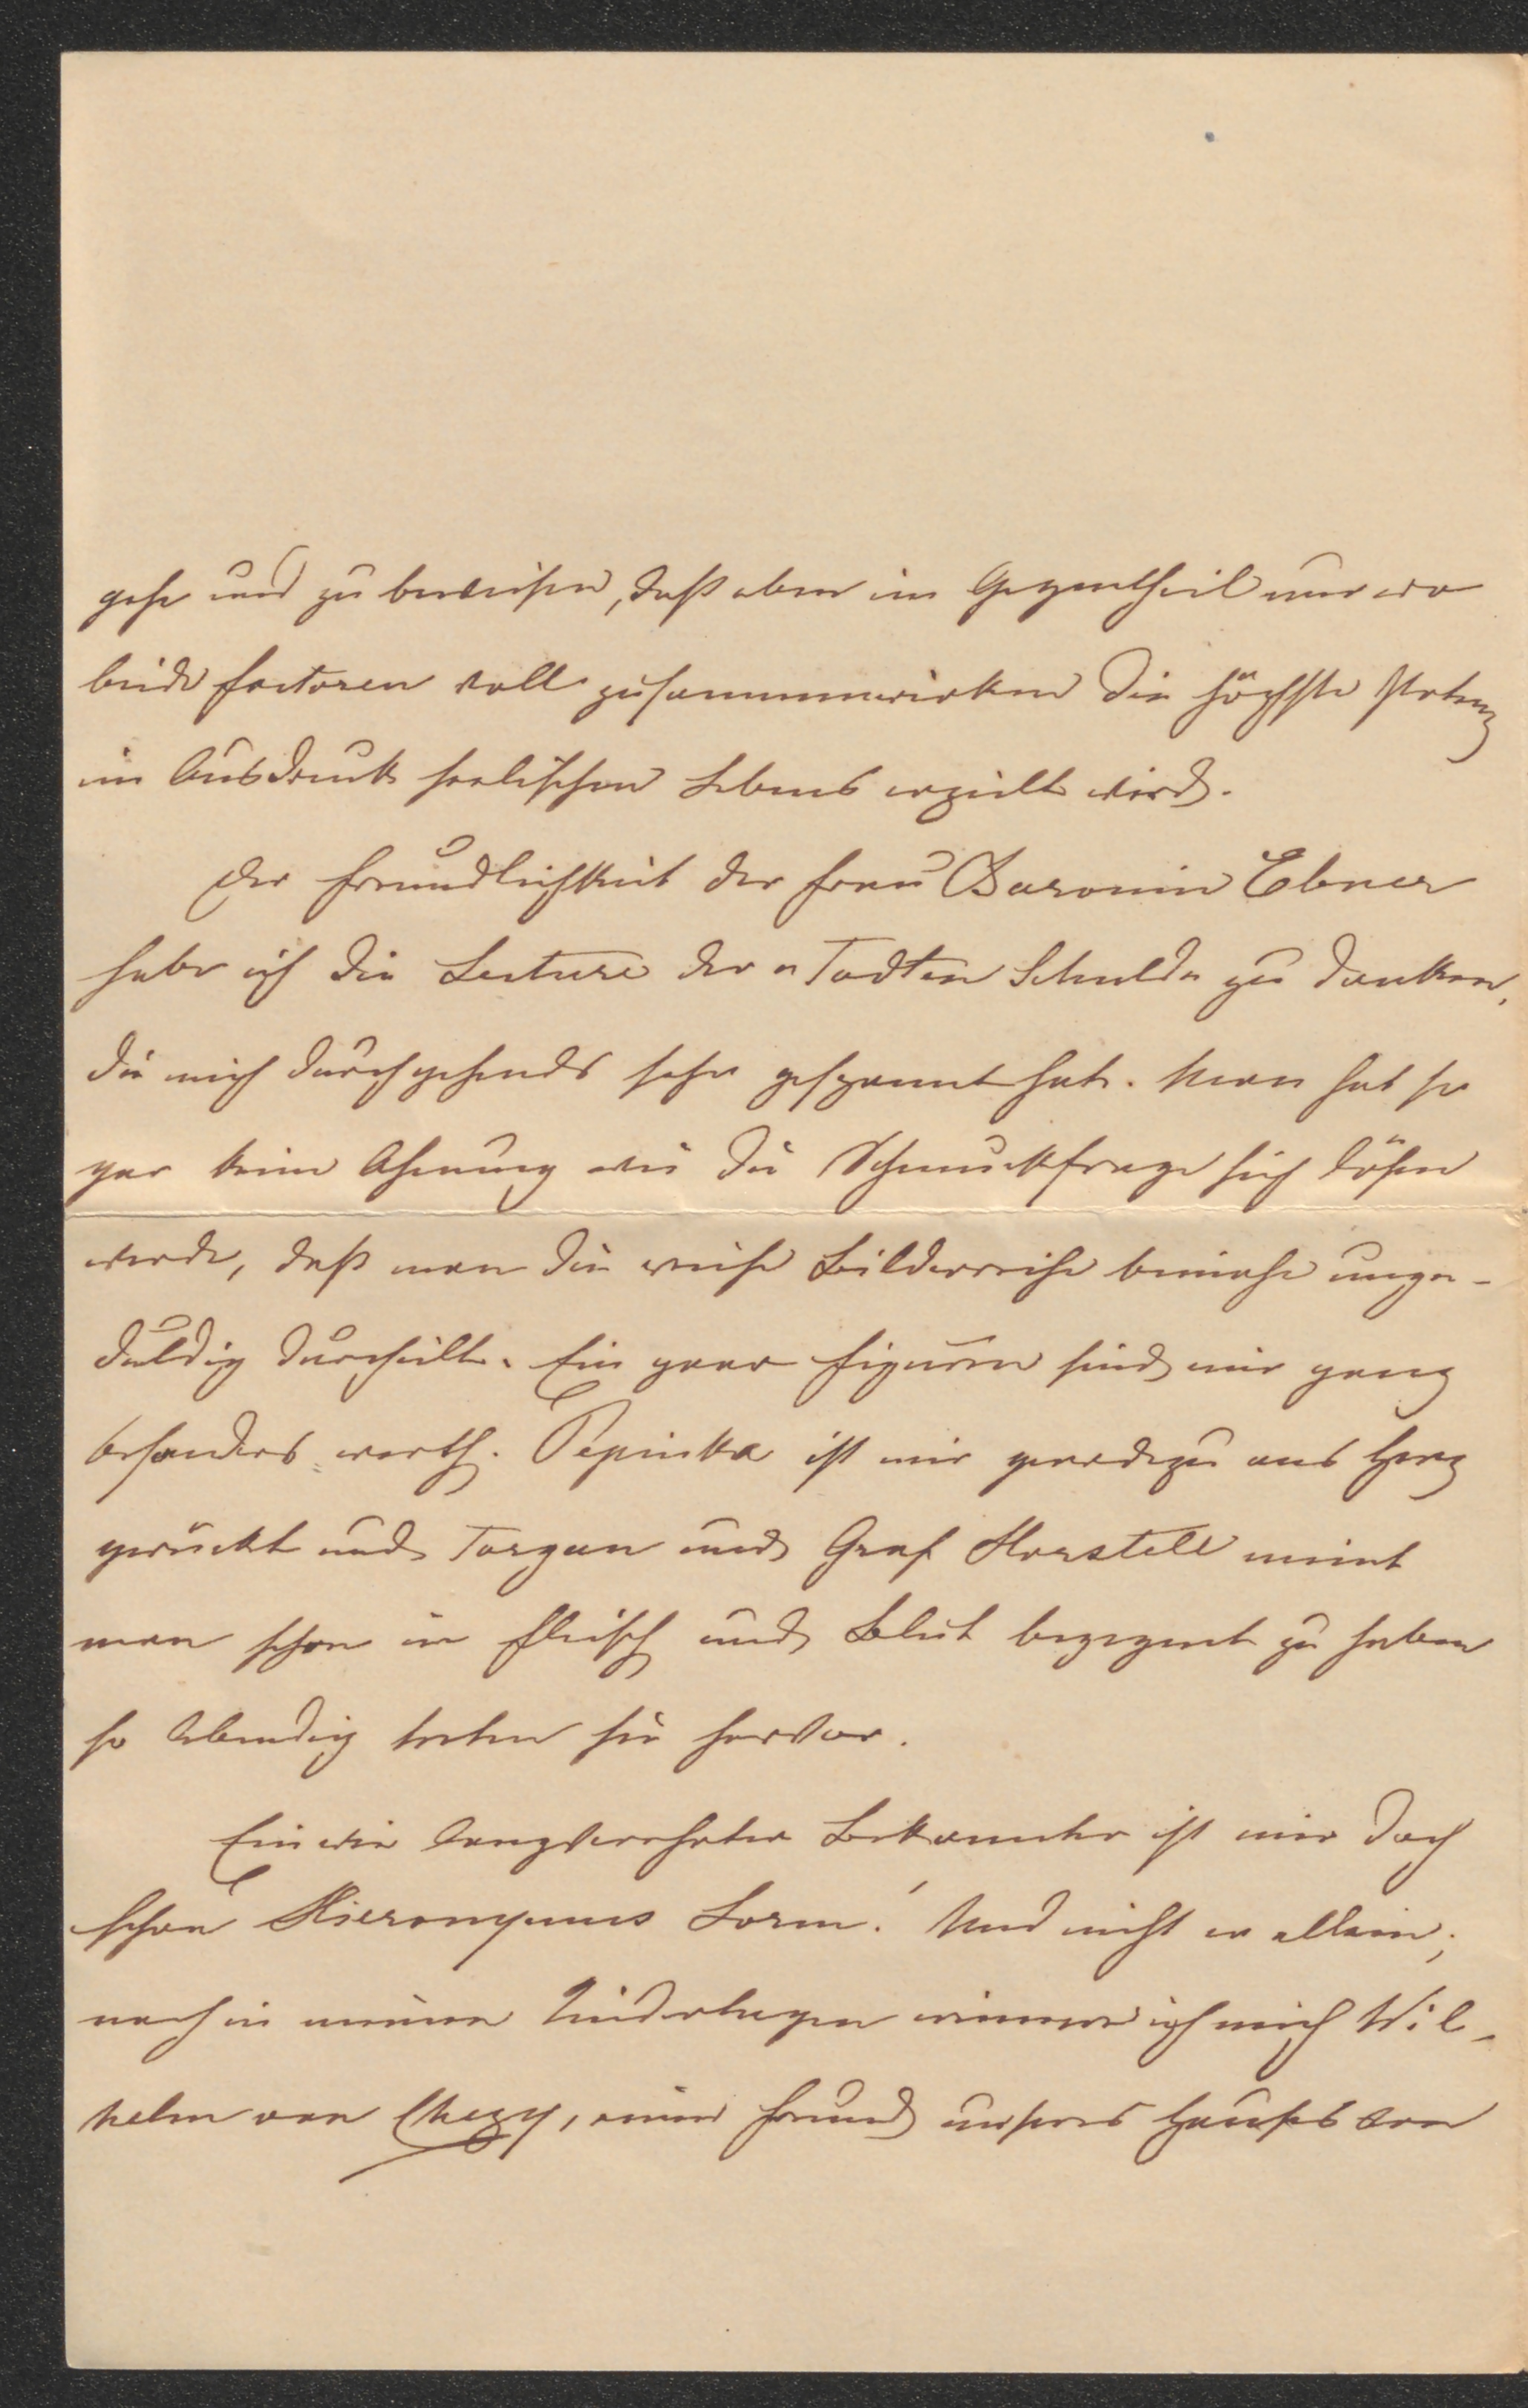 gehe und zu beweisen, daß eben im Gegentheil nur wo
beide Factoren voll zusammenwirken die höchste Potenz
im Ausdruck seelischen Lebens erzielt wird.
Der Freundlichkeit der Frau Baronin Ebner
habe ich die Lecture der „Todten Schuld" zu danken,
die mich durchgehends sehr gespannt hat. Man hat so
gar keine Ahnung wie die Schmuckfrage sich lösen
werde, daß man die reiche Bilderreihe beinahe unge-
duldig durcheilt. Ein paar Figuren sind mir ganz
besonders werth. Pepinka ist mir geradezu ans Herz
gerückt und Torgan und Graf Horstell meint
man schon in Fleisch und Blut begegnet zu haben
so lebendig treten sie hervor.
Ein wie langverehrter Bekannter ist mir doch
schon Hieronymus Lorm! Und nicht er allein;
noch in meinen Kindertagen erinnere ich mich Wil-
helm von Chezy, eines Freund unseres Hauses von